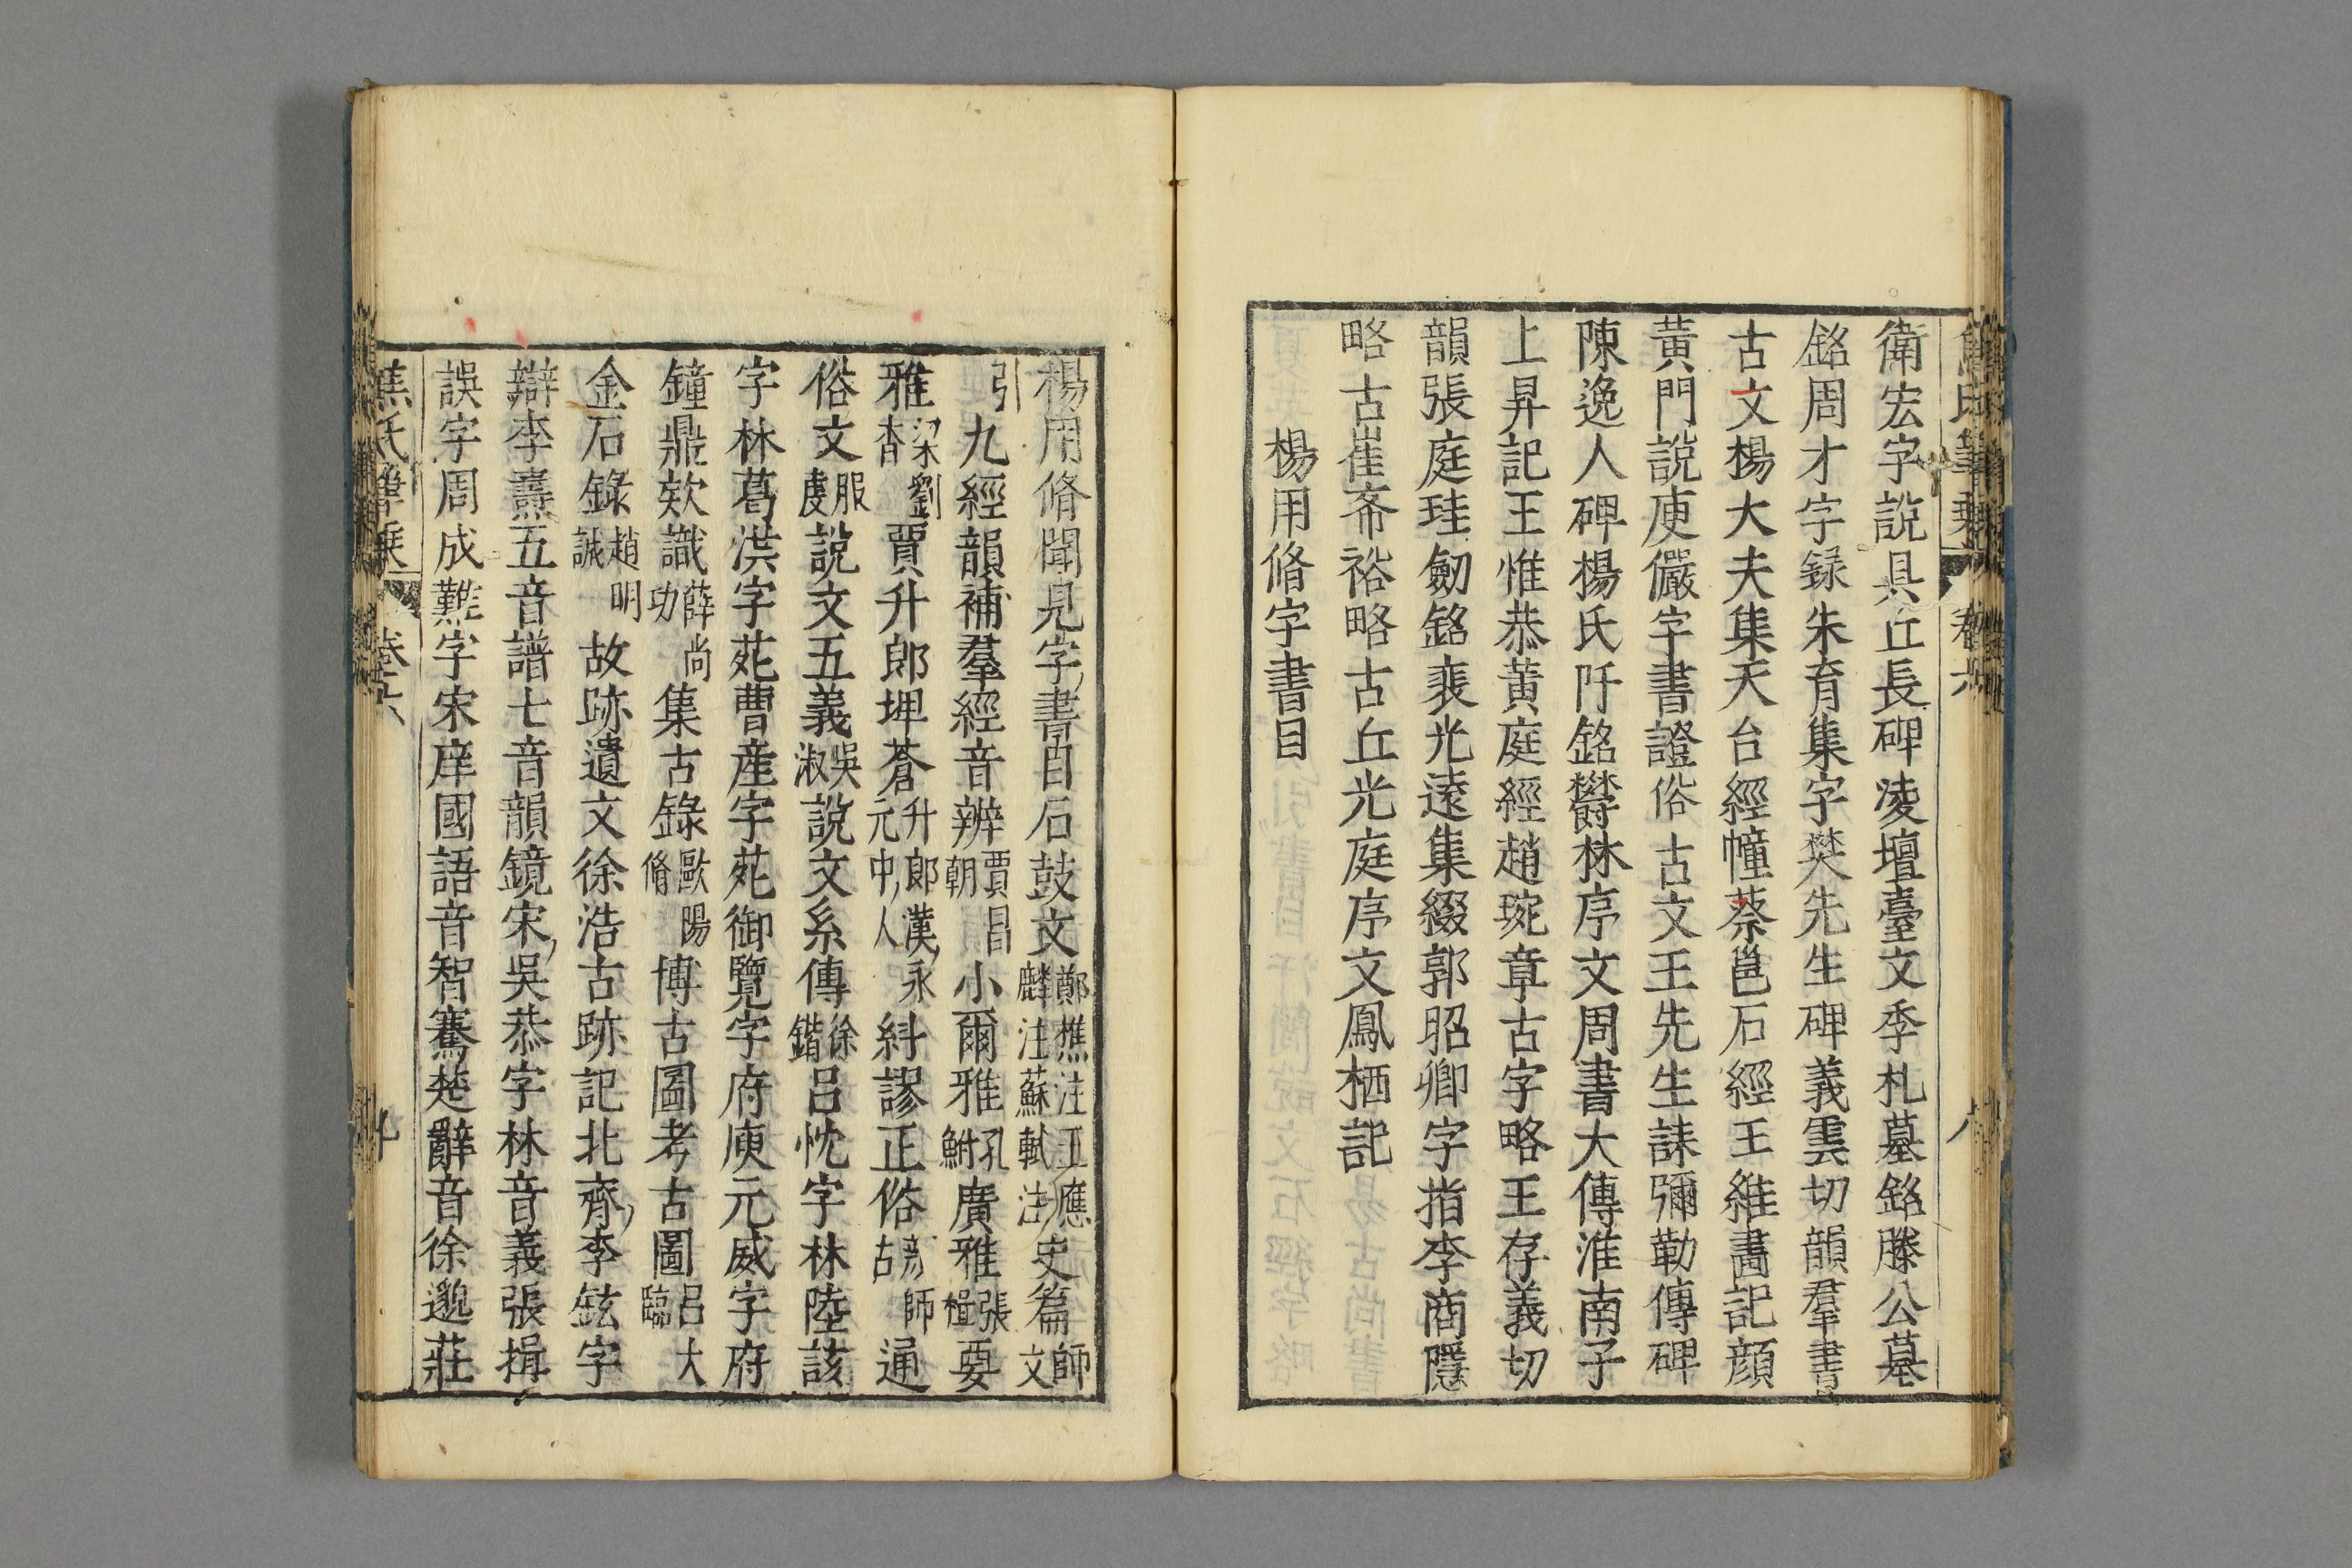 焦氏筆乘 卷六 八
衛宏字說具丘長碑凌壇臺文季札墓銘滕公墓
銘周才字録朱育集字樊先生碑義雲切韻羣書
古文楊大夫集天台經幢蔡邕石經王維畵記顔
黃門說庾儼字書證俗古文王先生誄彌勒傳碑
陳逸人碑楊氏阡銘欝林序文周書大傳淮南子
上昇記王惟恭黄庭經趙琬章古字略王存義切
韻張庭珪劒銘裴光遠集綴郭昭卿字指李商隱
略古崔希裕略古丘光庭序文鳳栖記
楊用脩字書目
楊用脩聞見字書目石鼓文鄭樵注王應麟注蘇軾注史篇師文
引九經韻補羣經音辨賈昌朝小爾雅孔鮒廣雅張楫要
雅梁劉杳賈升郎埤蒼升郎漢永元中人糾謬正俗顏師古通
俗文服虔說文五義吳淑說文系傳徐鍇吕忱字林陸該
字林葛洪字苑曹産字苑御覽字府庾元威字府
鐘鼎欵識薛尚功集古錄歐陽脩博古圖考古圖吕大臨
金石錄趙明誠故跡遺文徐浩古跡記北齊李鉉字
辯李燾五音譜七音韻鏡宋吳恭字林音義張揖
誤字周成難字宋庠國語音智騫楚辭音徐邈莊
焦氏筆乘 卷六 九